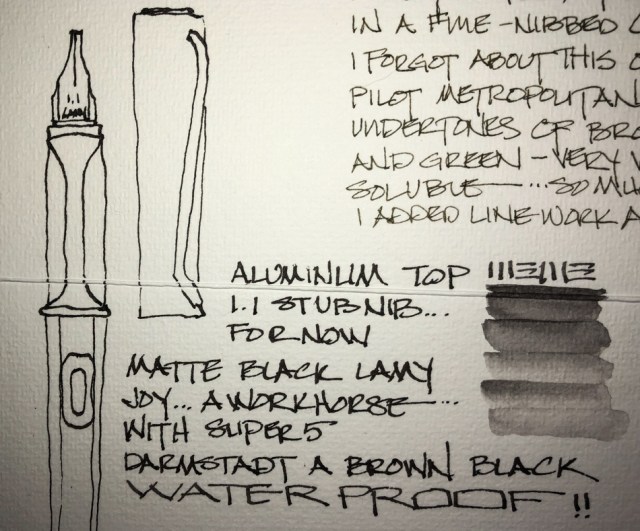 IN A FINE-NIBBED
I FORGOT ABOUT THIS
PILOT METROPOLITAN
UNDERTONES OF BRO
AND GREEN - VERY
SOLUBLE — ...SO MUCH
I ADDED LINE WORK A
ALUMINUM TOP
1.1 STUB NIB...
FOR NOW
MATTE BLACK LAMY
JOY... A WORKHORSE — ...
WITH SUPER5
DARMSTADT A BROWN BLACK
WATERPROOF!!